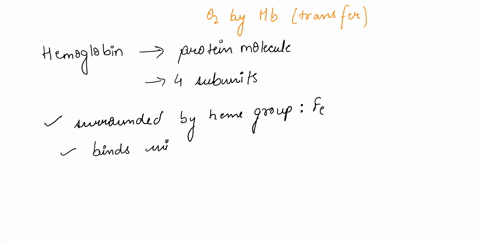 O2 by Hb (transfer)
Hemoglobin → protein molecule
→ 4 subunits
✓ surrounded by heme group : Fe
✓ binds wi